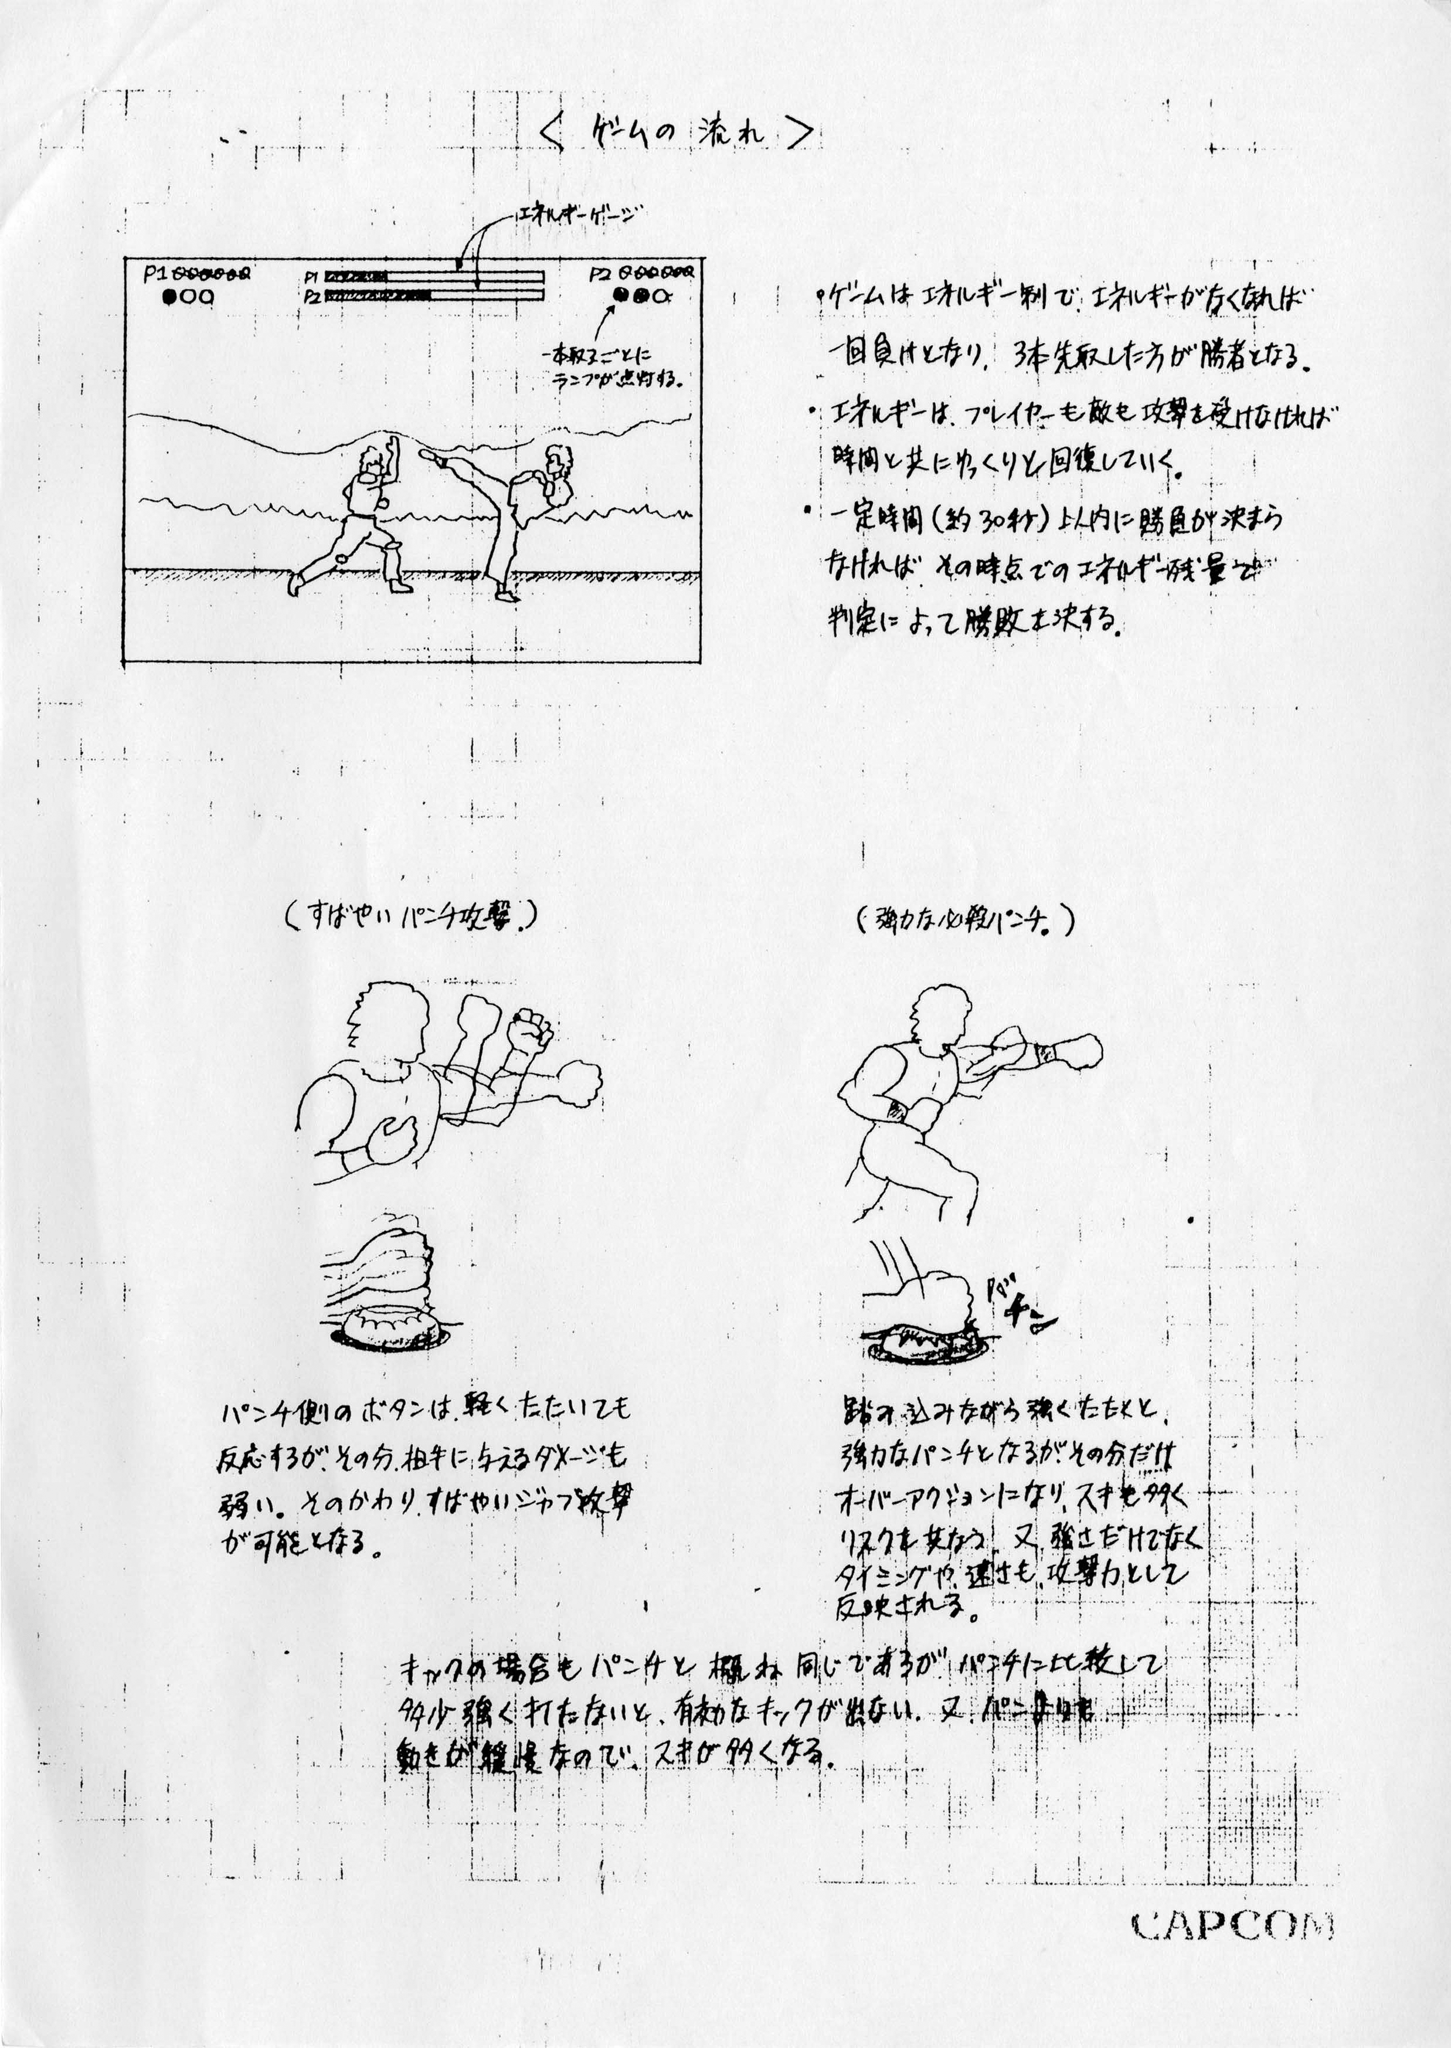 ＜ ゲームの流れ ＞
エネルギーゲージ
P1 000000
P1
P2
P2 000000
一本取るごとに
ランプが点灯する。
・ゲームはエネルギー制で、エネルギーがなくなれば
一回負けとなり、3本先取した方が勝者となる。
・エネルギーは、プレイヤーも敵も攻撃を受けなければ
時間と共にゆっくりと回復していく。
・一定時間(約30秒)以内に勝負が決まら
なければ、その時点でのエネルギー残量で
判定によって勝敗を決する。
(すばやいパンチ攻撃。)
(強力な必殺パンチ。)
バチン
パンチ側のボタンは、軽くたたいても
反応するが、その分、相手に与えるダメージも
弱い。そのかわり、すばやいジャブ攻撃
が可能となる。
踏み込みながら強くたたくと、
強力なパンチとなるが、その分だけ
オーバーアクションになり、スキも多く
リスクを共なう。又、強さだけでなく
タイミングや、速さも、攻撃力として
反映される。
キックの場合もパンチと概ね同じであるが、パンチに比較して
多少強く打たないと、有効なキックが出ない。又、パンチよりも
動きが緩慢なので、スキが多くなる。
CAPCOM